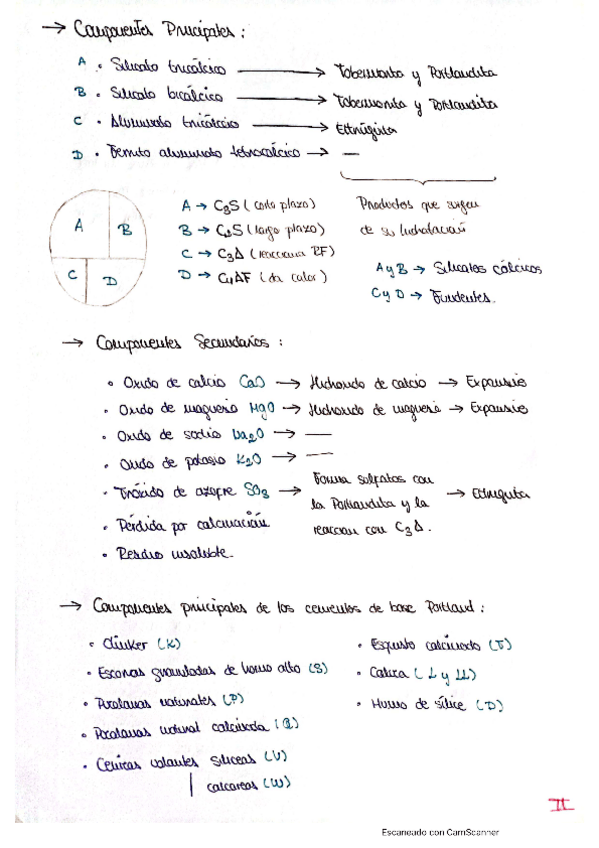 → Componentes Principales :
A • Silicato tricálcico → Tobermorita y Portlandita
B • Silicato bicálcico → Tobermorita y Portlandita
C • Aluminato tricálcico → Ettringita
D • Ferrito aluminato tetracálcico → —
A B C D
A → C3S ( corto plazo )
B → C2S ( largo plazo )
C → C3A ( reacciona RF )
D → C4AF ( da calor )
Productos que surgen
de su hidratación
A y B → Silicatos cálcicos
C y D → Fundentes.
→ Componentes Secundarios :
• Oxido de calcio CaO → Hidroxido de calcio → Expansivo
• Oxido de magnesio MgO → Hidroxido de magnesio → Expansivo
• Oxido de sodio Na2O → —
• Oxido de potasio K2O → —
• Trióxido de azufre SO3 → Forma sulfatos con
la Portlandita y la
reaccion con C3A. → Etringita
• Pérdida por calcinación
• Residuo insoluble.
→ Componentes principales de los cementos de base Portland :
• Clinker (K)
• Escorias granuladas de horno alto (S)
• Puzolanas naturales (P)
• Puzolanas natural calcinada (Q)
• Cenizas volantes siliceas (V)
calcareas (W)
• Esquisto calcinado (T)
• Caliza ( L y LL)
• Humo de sílice (D)
II
Escaneado con CamScanner